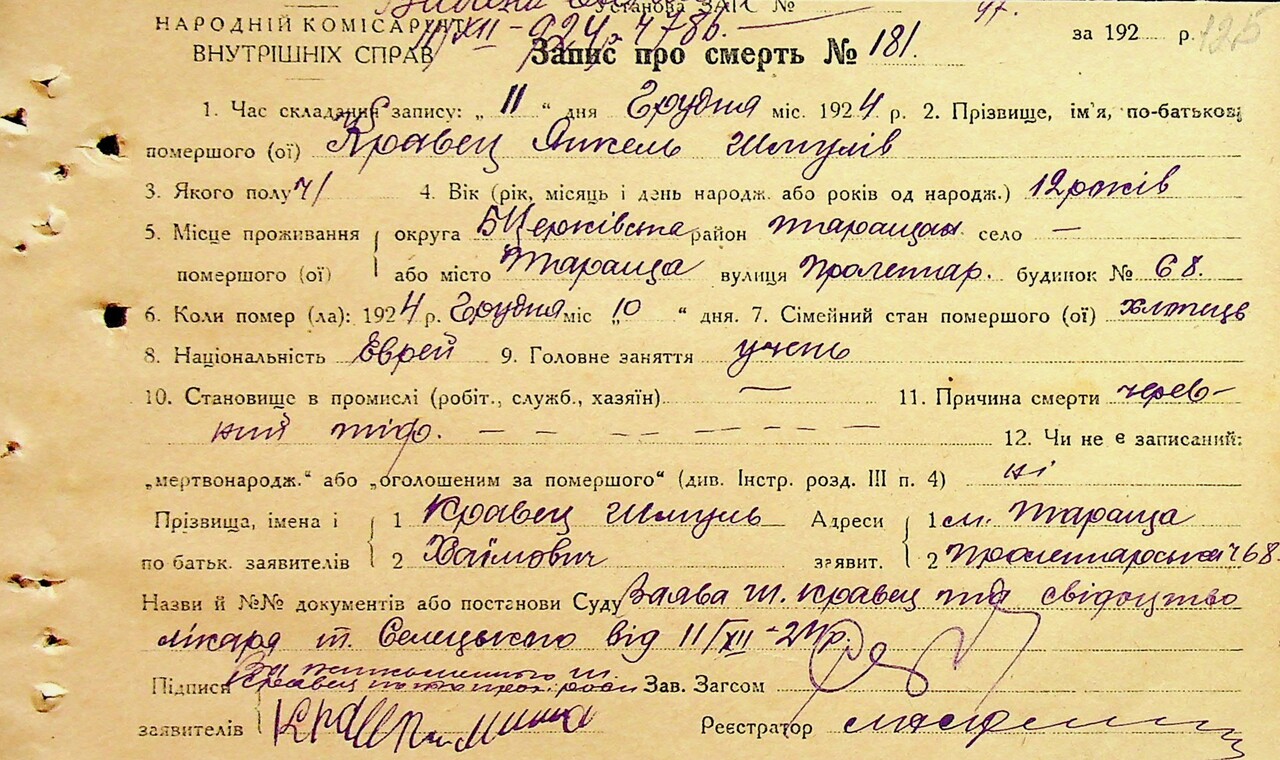 станова ЗАГС №
НАРОДНІЙ КОМІСАРІЯТ
ВНУТРІШНІХ СПРАВ
11/XII - 924 4786. -
за 192 р. 125
Запис про смерть № 181.
1. Час складання запису: „ 11 “ дня Грудня міс. 1924 р. 2. Прізвище, ім'я, по-батькові
помершого (ої) Кравец Янкель Шмулів
3. Якого полу ч/ 4. Вік (рік, місяць і день народж. або років од народж.) 12 років
5. Місце проживання округа БЦерківська район Таращан. село —
помершого (ої) або місто Тараща вулиця Пролетар. будинок № 68.
6. Коли помер (ла): 1924 р. Грудня міс „ 10 “ дня. 7. Сімейний стан помершого (ої) хлопець
8. Національність Еврей 9. Головне заняття учень
10. Становище в промислі (робіт., служб., хазяїн) — 11. Причина смерти черев-
ний тіф. — — — — — — — 12. Чи не є записаний:
„мертвонародж.“ або „оголошеним за помершого“ (див. Інстр. розд. III п. 4) ні
Прізвища, імена і 1 Кравец Шмуль Адреси 1 м. Тараща
по батьк. заявителів 2 Хаїмович заявит. 2 Пролетарська ч 68
Назви й №№ документів або постанови Суду Заява Ш. Кравец та свідоцтво
лікаря т. Селецького від 11/XII - 24 р.
Підписи Кравец Зав. Загсом
заявителів Реєстратор